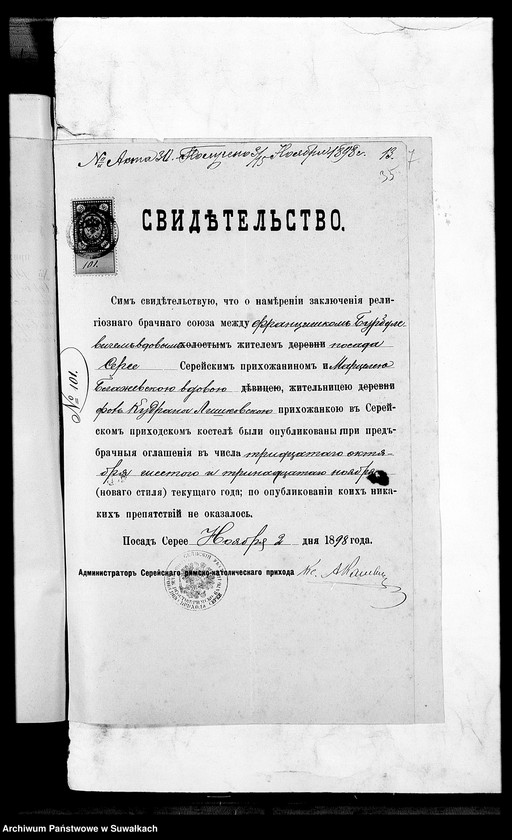 № Акта 30. Получено 3/15 Ноября 1898 г. 13. 7
35
101.
СВИДѢТЕЛЬСТВО.
№ 101.
Симъ свидѣтельствую, что о намѣреніи заключенія рели-
гіознаго брачнаго союза между Францишкомъ Бурдуле-
вичемъ вдовымъ холостымъ жителемъ деревни посада
Серее Серейскимъ прихожаниномъ и Марцелею
вдовою дѣвицею, жительницею деревни
прихожанкою въ Серей-
скомъ приходскомъ костелѣ были опубликованы три предъ-
брачныя оглашенія въ числа тридцатаго октя-
бря шестого и тринадцатаго ноября
(новаго стиля) текущаго года; по опубликованіи коихъ ника-
кихъ препятствій не оказалось.
Посадъ Серее Ноября 2 дня 1898 года.
Администраторъ Серейскаго римско-католическаго прихода Кс.
Archiwum Państwowe w Suwałkach